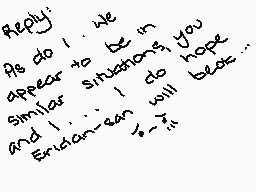 Reply:
As do I. We
appear to be in
similar situations, you
and I... I do hope
Eridan-san will beok...
;-;;;